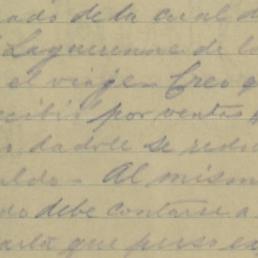 ado de la cual d
Laguerenne de lo
el viaje. Creo q
recibir por ventas
dadole se redu
aldo. Al mism
do debe contarse a
carta que puso en